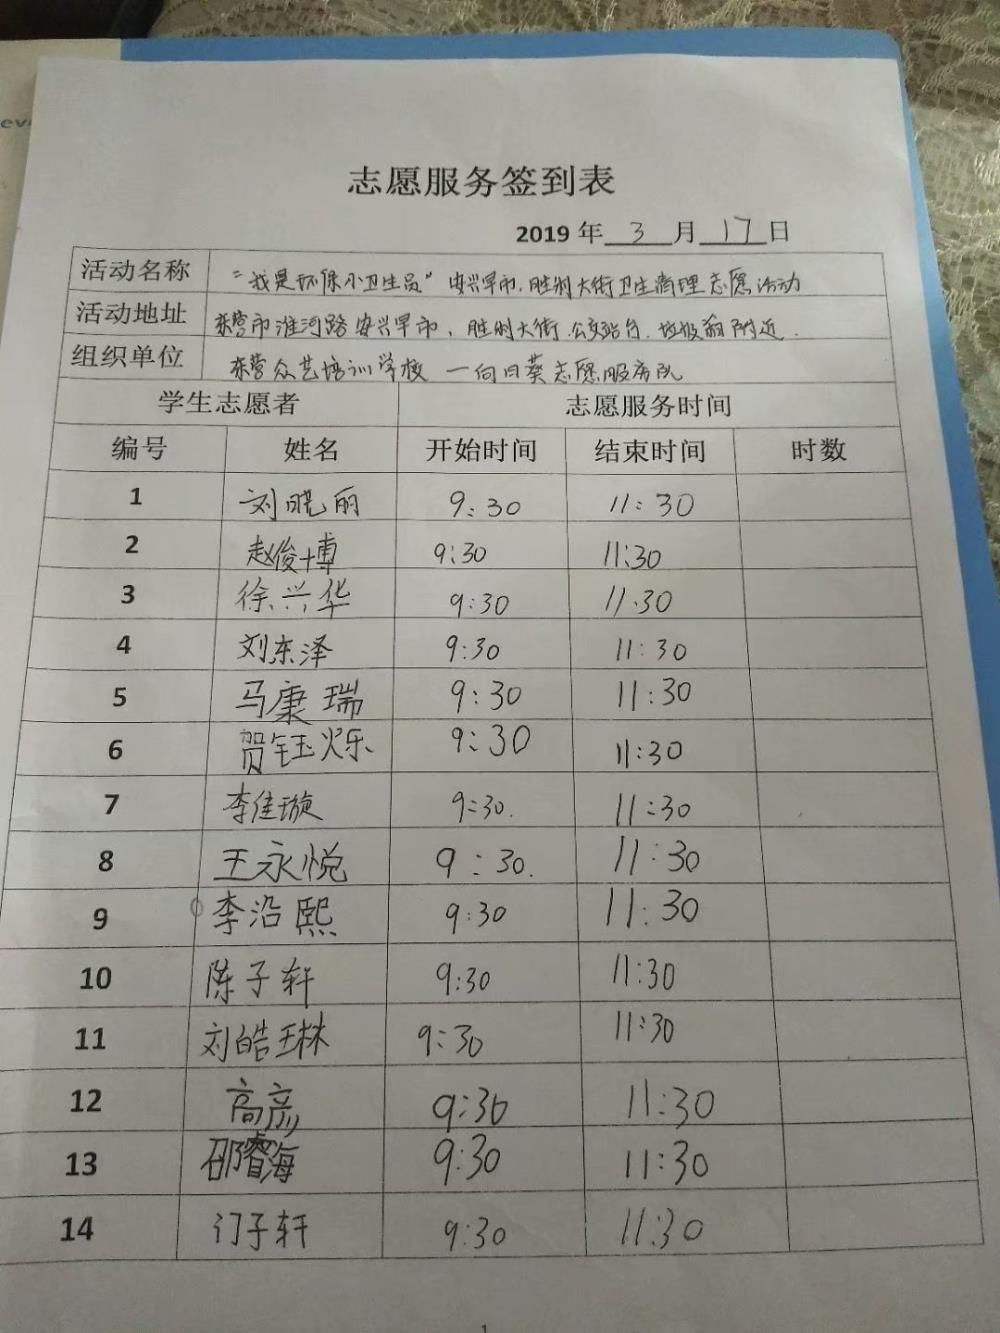 志愿服务签到表
2019 年 3 月 17 日
活动名称 "我是环保小卫生员" 安兴早市、胜利大街卫生清理志愿活动
活动地址 东营市淮河路安兴早市、胜利大街、公交站台、垃圾箱附近.
组织单位 东营众艺培训学校 — 向日葵志愿服务队
学生志愿者 志愿服务时间
编号 姓名 开始时间 结束时间 时数
1 刘晓丽 9:30 11:30
2 赵俊博 9:30 11:30
3 徐兴华 9:30 11.30
4 刘东泽 9:30 11:30
5 马康瑞 9:30 11:30
6 贺钰烁 9:30 11:30
7 李佳璇 9:30. 11:30
8 王永悦 9:30. 11:30
9 李沿熙 9:30 11:30
10 陈子轩 9:30 11:30
11 刘皓琳 9:30 11:30
12 高彦 9:30 11:30
13 邵睿海 9:30 11:30
14 子轩 9:30 11:30
1